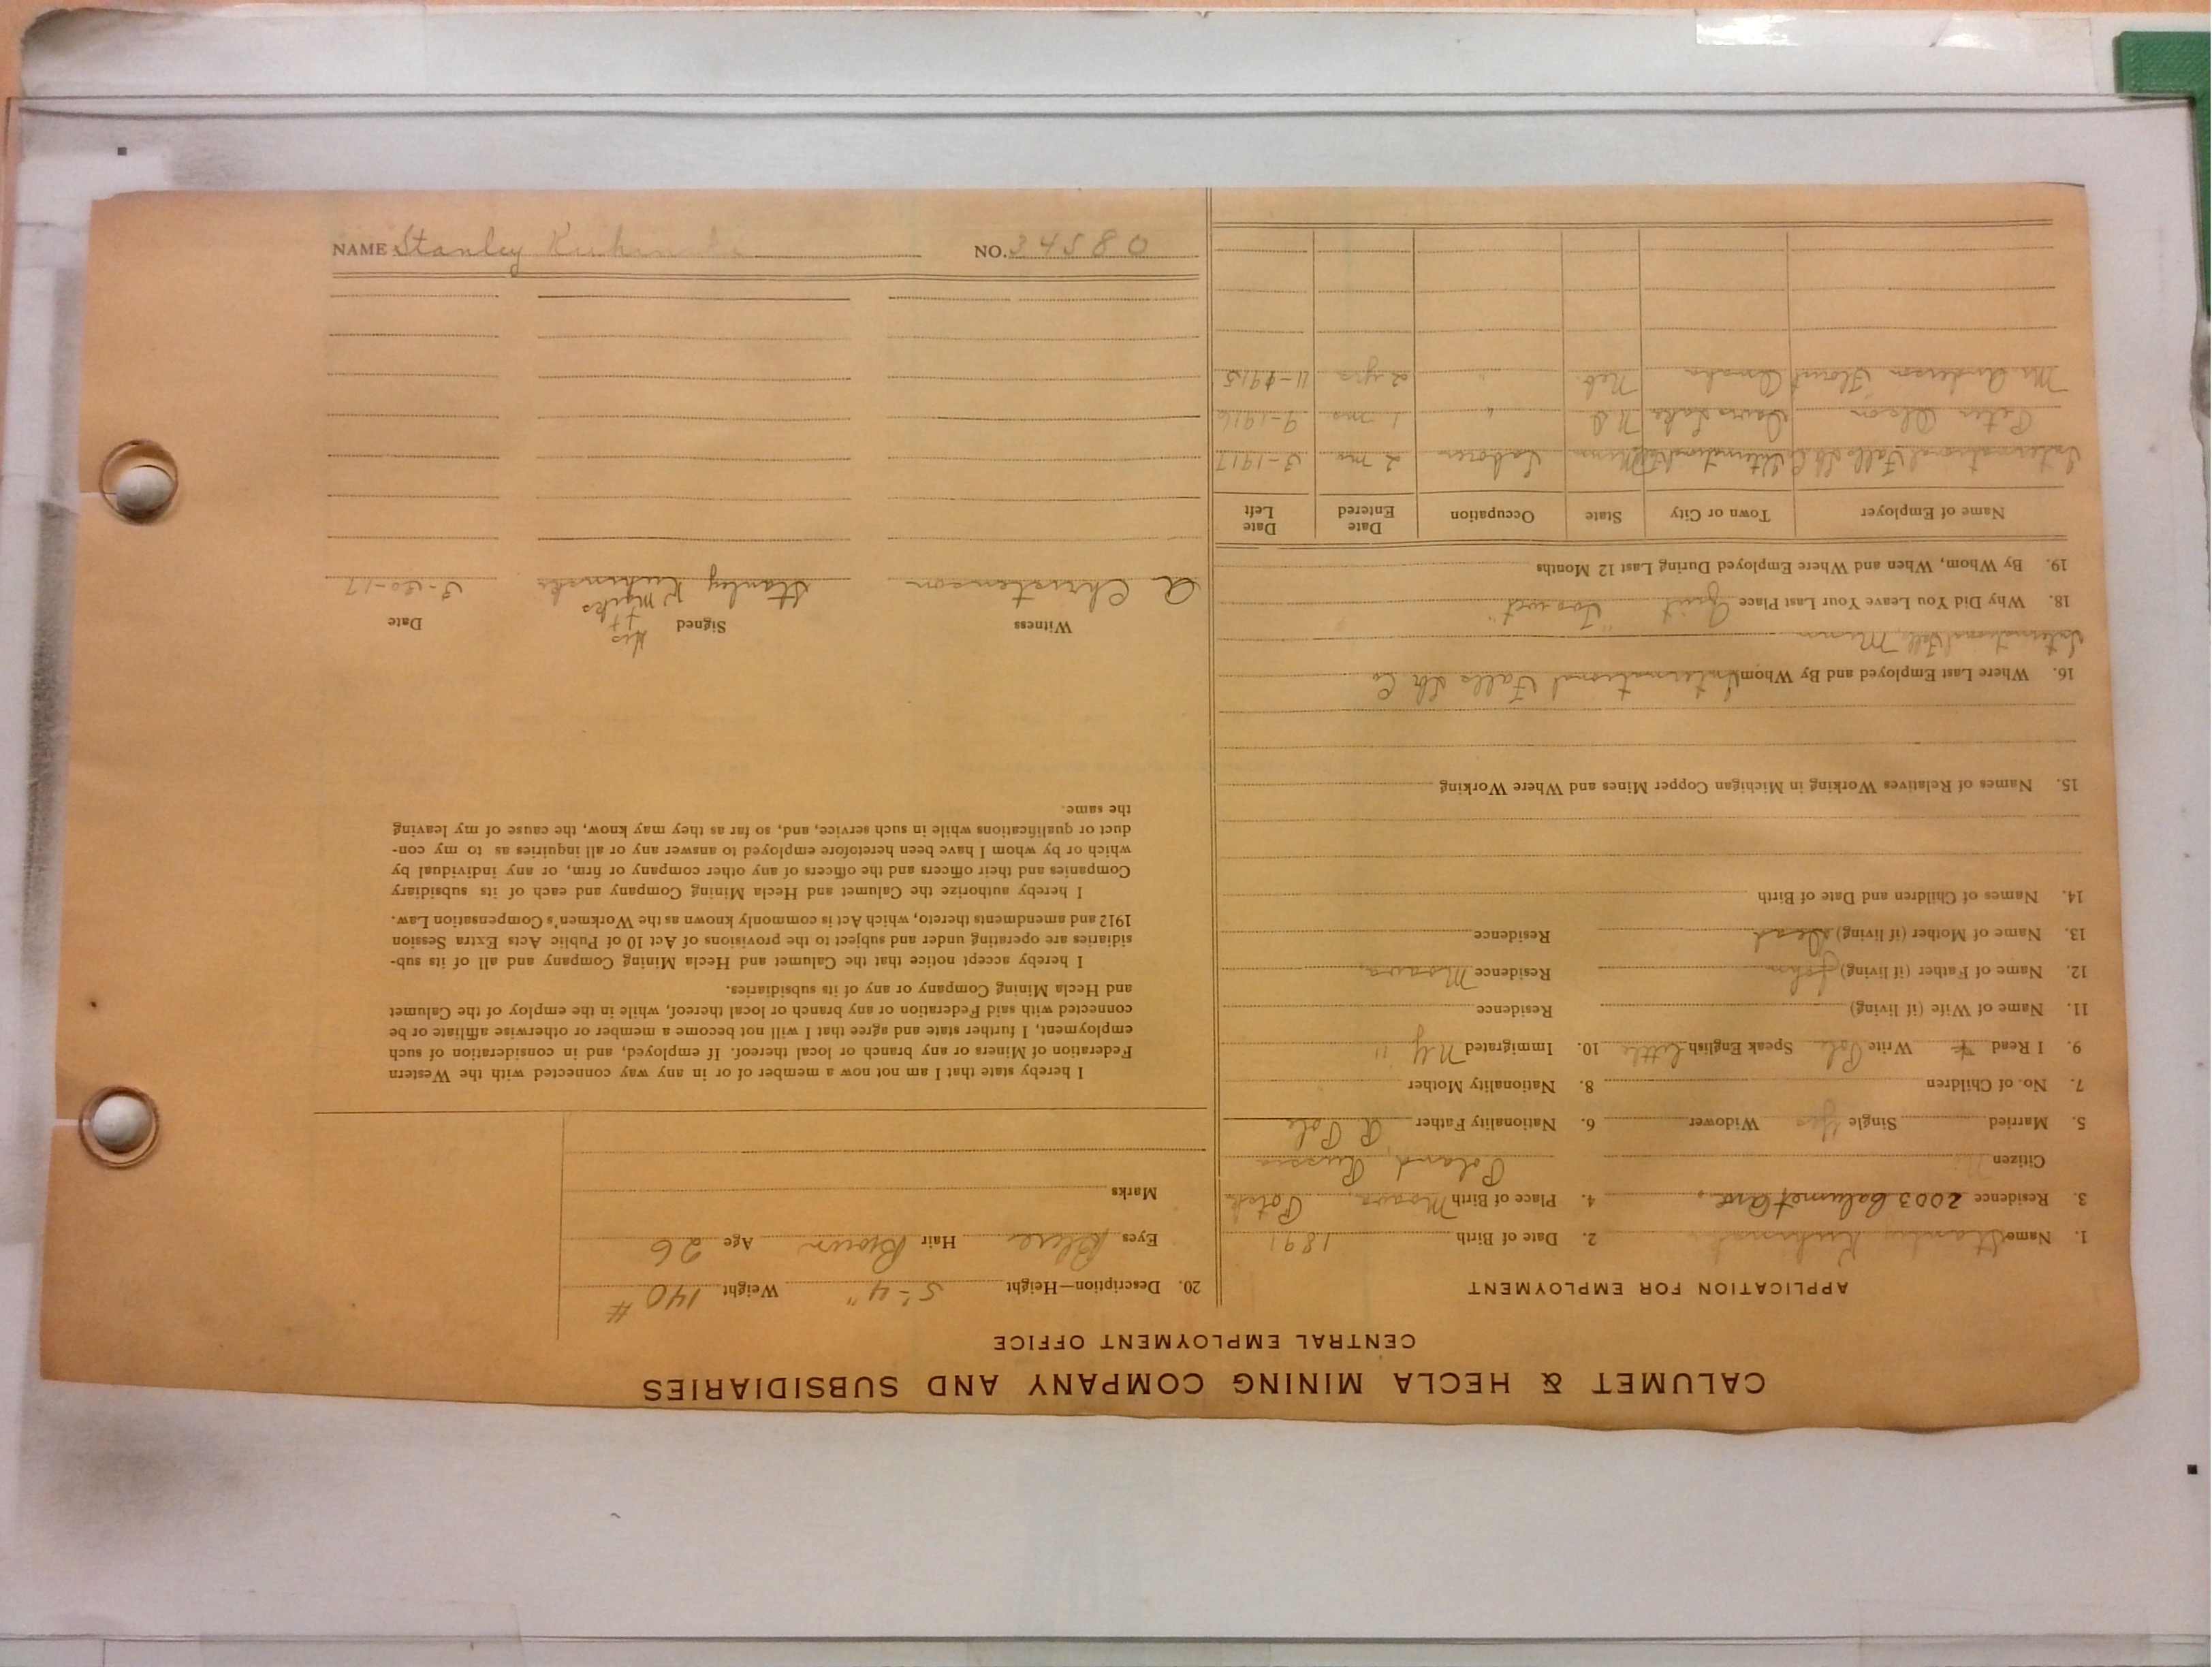 CALUMET & HECLA MINING COMPANY AND SUBSIDIARIES
CENTRAL EMPLOYMENT OFFICE
APPLICATION FOR EMPLOYMENT
1. Name Stanley 2. Date of Birth 1891
3. Residence 2003 Calumet Ave. 4. Place of Birth
Citizen Poland, Russia
5. Married Single Yes Widower 6. Nationality Father R Pole
7. No. of Children 8. Nationality Mother
9. I Read Write Pole Speak English Little 10. Immigrated N.Y. 11
11. Name of Wife (if living) Residence
12. Name of Father (if living) John Residence
13. Name of Mother (if living) Dead Residence
14. Names of Children and Date of Birth
15. Names of Relatives Working in Michigan Copper Mines and Where Working
16. Where Last Employed and By Whom International Falls Lbr Co
International Falls Minn
18. Why Did You Leave Your Last Place Quit "Too wet"
19. By Whom, When and Where Employed During Last 12 Months
Name of Employer Town or City State Occupation Date Entered Date Left
International Falls Lbr Co International Falls Minn Laborer 2 mo 3-1917
Peter Olson Devils Lake N.D. " 1 mo 9-1916
Mr. Anderson Omaha Neb " 2 yrs 11-1915
20. Description—Height 5'-4" Weight 140 #
Eyes Blue Hair Brown Age 26
Marks
I hereby state that I am not now a member of or in any way connected with the Western
Federation of Miners or any branch or local thereof. If employed, and in consideration of such
employment, I further state and agree that I will not become a member or otherwise affiliate or be
connected with said Federation or any branch or local thereof, while in the employ of the Calumet
and Hecla Mining Company or any of its subsidiaries.
I hereby accept notice that the Calumet and Hecla Mining Company and all of its sub-
sidiaries are operating under and subject to the provisions of Act 10 of Public Acts Extra Session
1912 and amendments thereto, which Act is commonly known as the Workmen's Compensation Law.
I hereby authorize the Calumet and Hecla Mining Company and each of its subsidiary
Companies and their officers and the officers of any other company or firm, or any individual by
which or by whom I have been heretofore employed to answer any or all inquiries as to my con-
duct or qualifications while in such service, and, so far as they may know, the cause of my leaving
the same.
Witness Signed Date
His
Marks
A Christenson Stanley 3-20-17
NAME Stanley NO. 34580